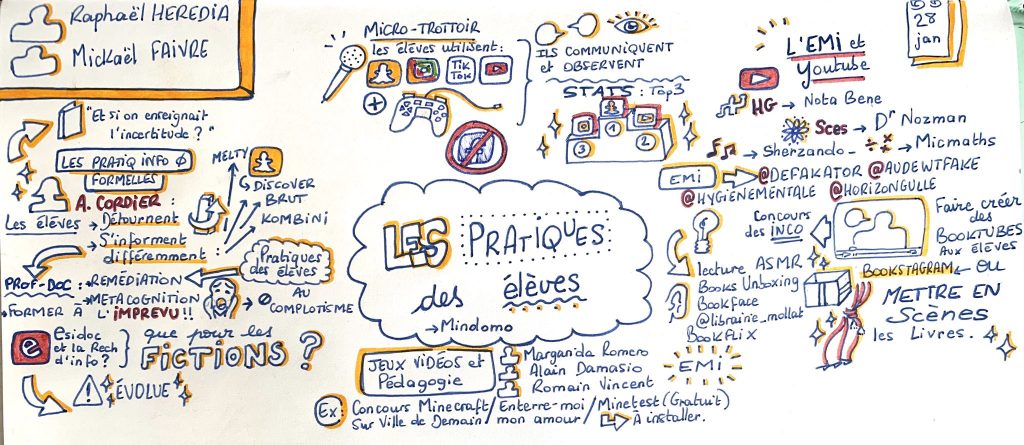 Raphaël HEREDIA
Mickaël FAIVRE
"Et si on enseignait
l'incertitude ?"
LES PRATIQ INFO Ø
FORMELLES
A. CORDIER :
Les élèves → Détournent
→ S'informent
différemment :
MELTY
DISCOVER
BRUT
KOMBINI
Pratiques
des élèves
PROF-DOC : → REMÉDIATION
→ METACOGNITION
→ FORMER À L'IMPREVU !!
→ Ø AU
COMPLOTISME
e
Esidoc
et la Rech
d'info ?
que pour les
FICTIONS ?
! ÉVOLUE
MICRO-TROTTOIR
les élèves utilisent :
TIK
TOK
+
ILS COMMUNIQUENT
et OBSERVENT
STATS : Top 3
3
1
2
LES PRATIQUES
des élèves
→ Mindomo
JEUX VIDÉOS et
Pédagogie
Margarida Romero
Alain Damasio
Romain Vincent
EMi
Ex: Concours Minecraft / Enterre-moi / Minetest (Gratuit)
Sur Ville de Demain / mon amour / À installer.
28
jan
L'EMi et
Youtube
HG → Nota Bene
Sces → Dr Nozman
→ Sherzando
→ Micmaths
EMi → @DEFAKATOR @AUDEWTFAKE
@HYGIENEMENTALE @HORIZONGULLE
Concours
des INCO
Faire créer
des
BOOKTUBES
AUX ÉLÈVES
lecture ASMR
Books Unboxing
Bookface
@librairie_mollat
BOOKFLIX
BOOKSTAGRAM ← OU
METTRE EN
Scènes
les Livres.